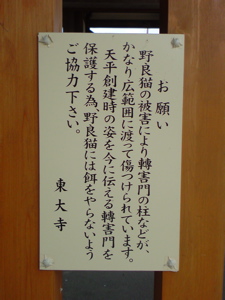 お願い
野良猫の被害により轉害門の柱などが、
かなり広範囲に渡って傷つけられています。
天平創建時の姿を今に伝える轉害門を
保護する為、野良猫には餌をやらないよう
ご協力下さい。
東大寺